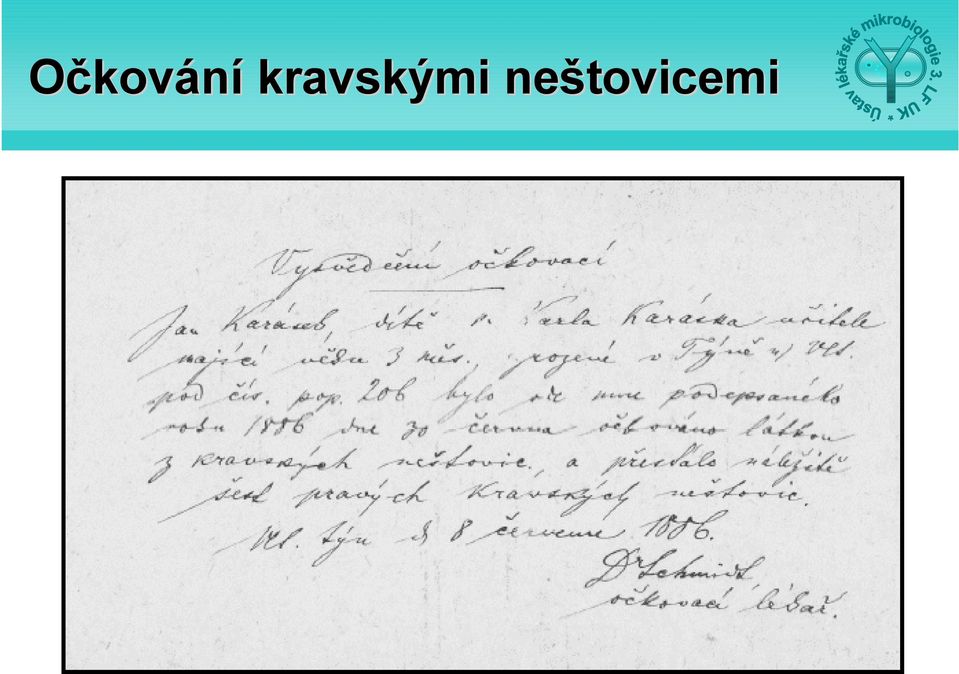 Očkování kravskými neštovicemi
Ústav lékařské mikrobiologie 3. LF UK *
Vysvědčení očkovací
Jan Karásek, dítě p. Karla Karáska učitele
mající věku 3 měs., rozené v Týně n/ Vlt.
pod čís. pop. 206 bylo ode mne podepsaného
roku 1886 dne 30 června očkováno látkou
z kravských neštovic, a přestálo náležitě
šest pravých kravských neštovic.
Vlt. Týn d 8 července 1886.
Dr Schmidt,
očkovací lékař.